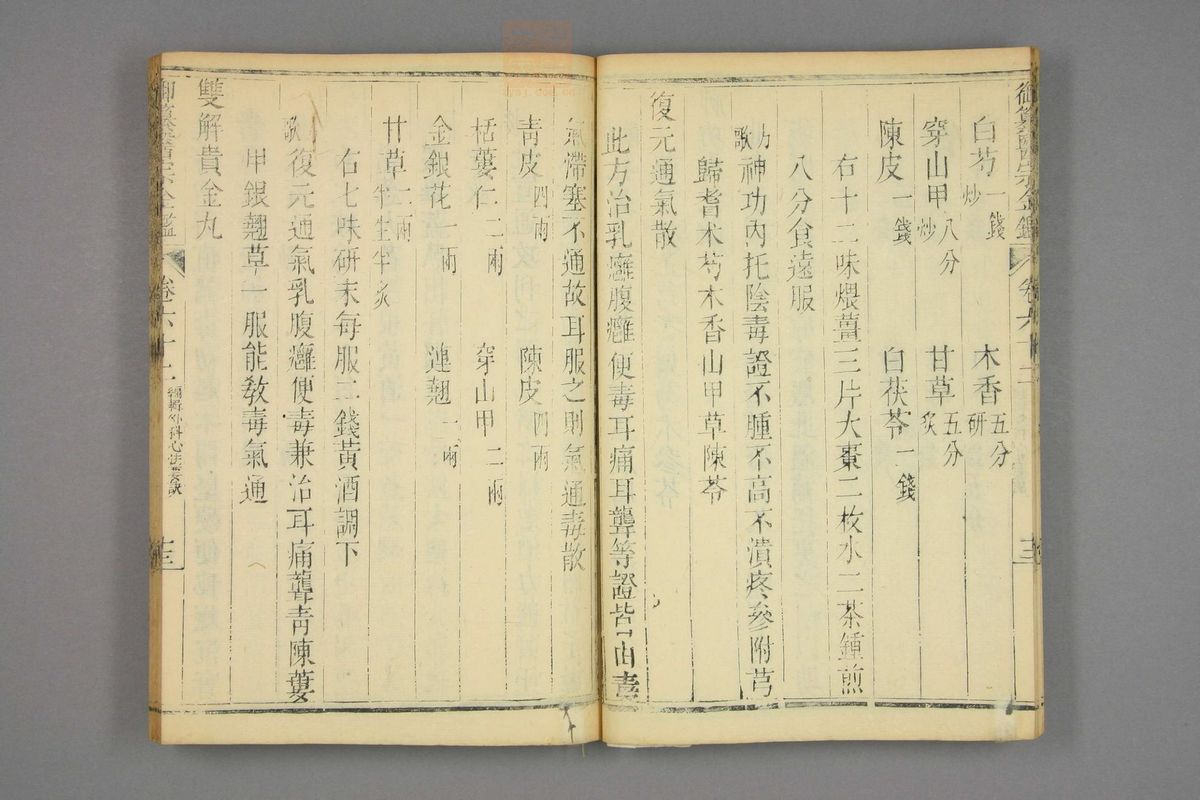 御纂醫宗金鑑 卷六十二
白芍一錢炒 木香五分研
穿山甲八分炒 甘草五分炙
陳皮一錢 白茯苓一錢
右十二味煨薑三片大棗二枚水二茶鍾煎
八分食遠服
方歌神功內托陰毒證不腫不高不潰疼參附芎
歸耆朮芍木香山甲草陳苓
復元通氣散
此方治乳癰腹癰便毒耳痛耳聾等證皆由毒
氣滯塞不通故耳服之則氣通毒散
青皮四兩 陳皮四兩
栝蔞仁二兩 穿山甲二兩
金銀花一兩 連翹一兩
甘草二兩半生半炙
右七味研末每服二錢黃酒調下
歌復元通氣乳腹癰便毒兼治耳痛聾青陳蔞
甲銀翹草一服能教毒氣通
雙解貴金丸
御纂醫宗金鑑 卷六十二 編輯外科心法要訣 十三